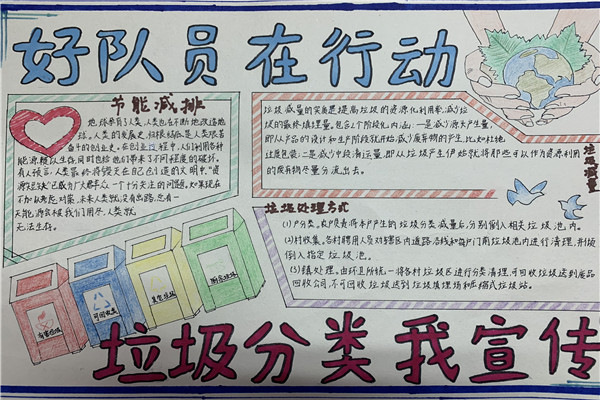 好队员在行动
节能减排
地球养育了人类,人类也在不断地改造地
球。人类的发展史,归根结底,是人类艰苦
奋斗的创业史。在创业过程中,人们利用各种
能源赖以生存,同时也给他们带来了不同程度的破坏。
有人预言:人类最终将毁灭在自己创造的文明中。"资
源短缺"已成为广大群众一个十分关注的问题。如果现在
不加以考虑对策,未来人类就没有出路,总有一
天能源会被我们用尽,人类就
无法生存。
垃圾减量的实质是提高垃圾的资源化利用率,减少垃
圾的最终填埋量。包含2个阶段的内涵:一是减少源头产生量,
即从产品的设计和生产阶段就开始减少废弃物的产生,比如杜绝
过度包装;二是减少中段清运量,即从垃圾产生伊始就将那些可以作为资源利用
的废弃物尽量分流出去。
垃圾减量
垃圾处理方式
(1)户分类。农户负责将本户产生的垃圾分类减量后,分别倒入相关垃圾池内。
(2)村收集。各村聘用人员对辖区内道路沿线和每户门前垃圾池内进行清理,并倾
倒入指定垃圾池。
(3)镇处理。由环卫所统一将各村垃圾区进行分类清理,可回收垃圾送到废品
回收公司,不可回收垃圾送到垃圾填埋场和
有害垃圾
可回收物
其它垃圾
厨余垃圾
垃圾分类我宣传